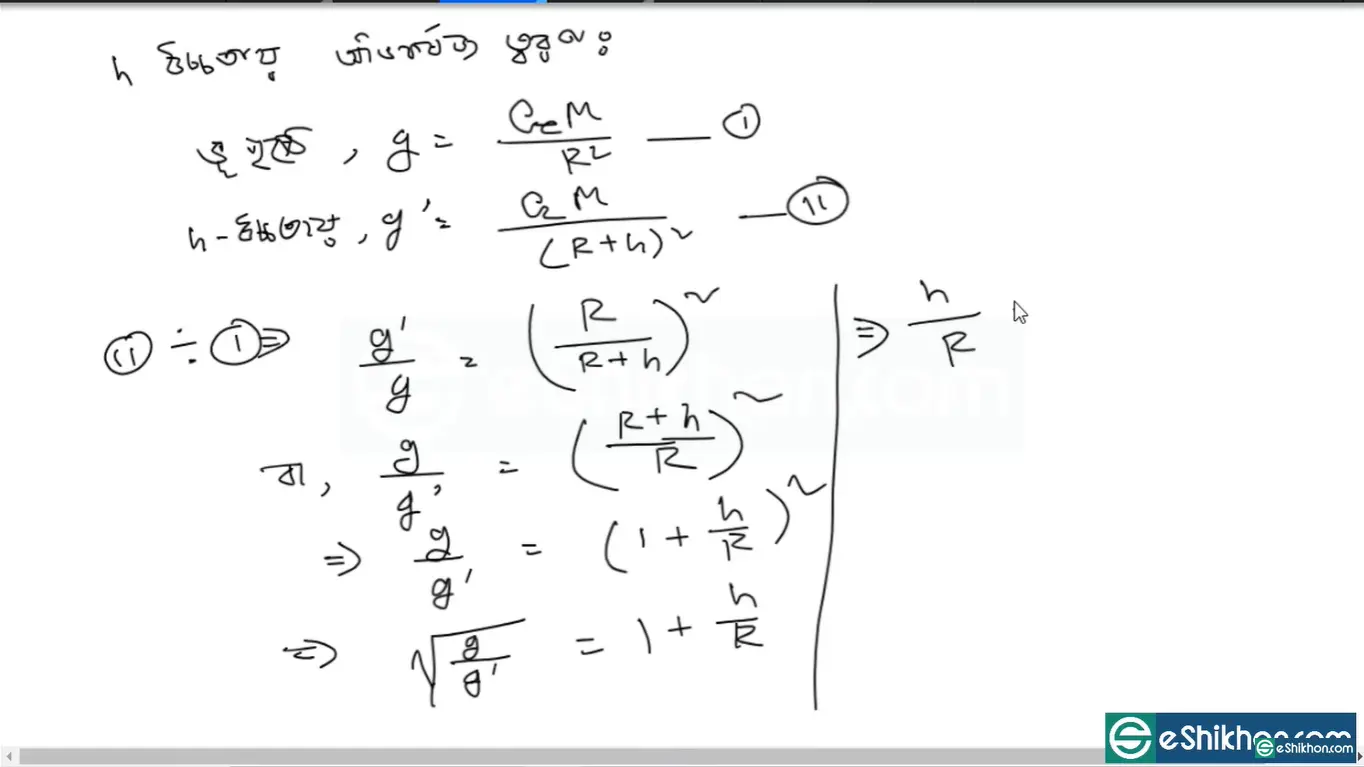 h উচ্চতায় অভিকর্ষজ ত্বরণঃ
ভূ পৃষ্ঠে, g = GM / R² — (i)
h-উচ্চতায়, g' = GM / (R+h)² — (ii)
(ii) ÷ (i) ⇒ g'/g = (R / (R+h))²
বা, g/g' = ((R+h) / R)²
⇒ g/g' = (1 + h/R)²
⇒ √(g/g') = 1 + h/R
⇒ h/R
eShikhon.com
eShikhon.com
eShikhon.com